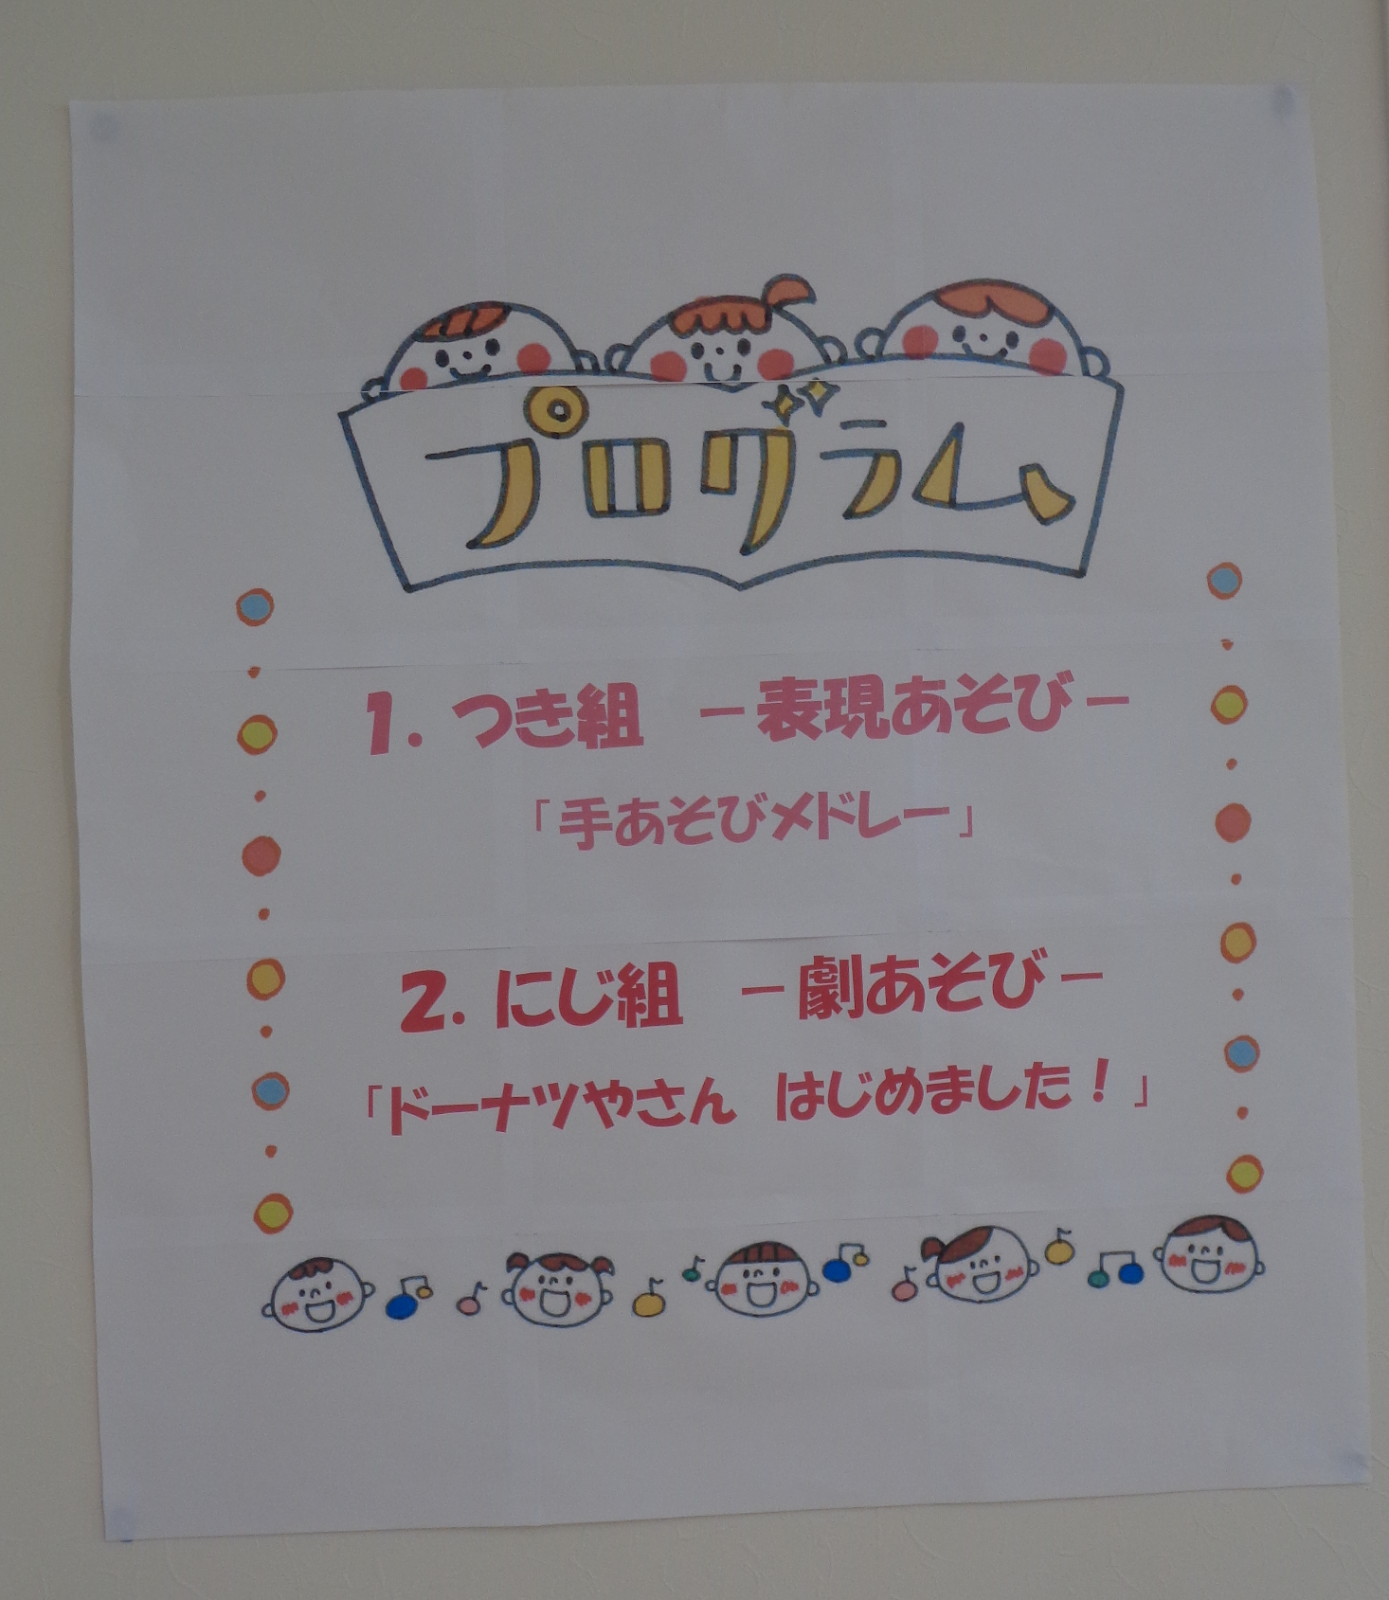 プログラム
1. つき組　－表現あそび－
「手あそびメドレー」
2. にじ組　－劇あそび－
「ドーナツやさん　はじめました！」